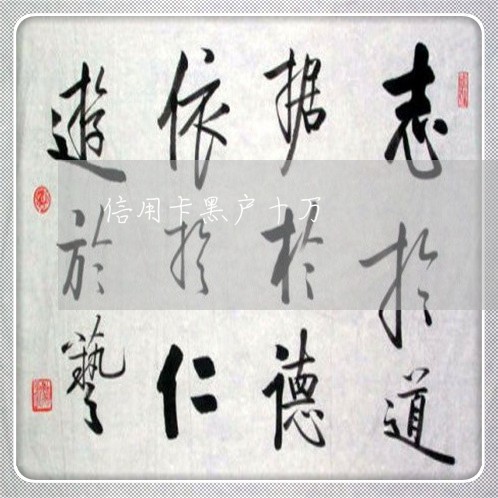 志於道
据於德
依於仁
遊於藝
信用卡黑户十万